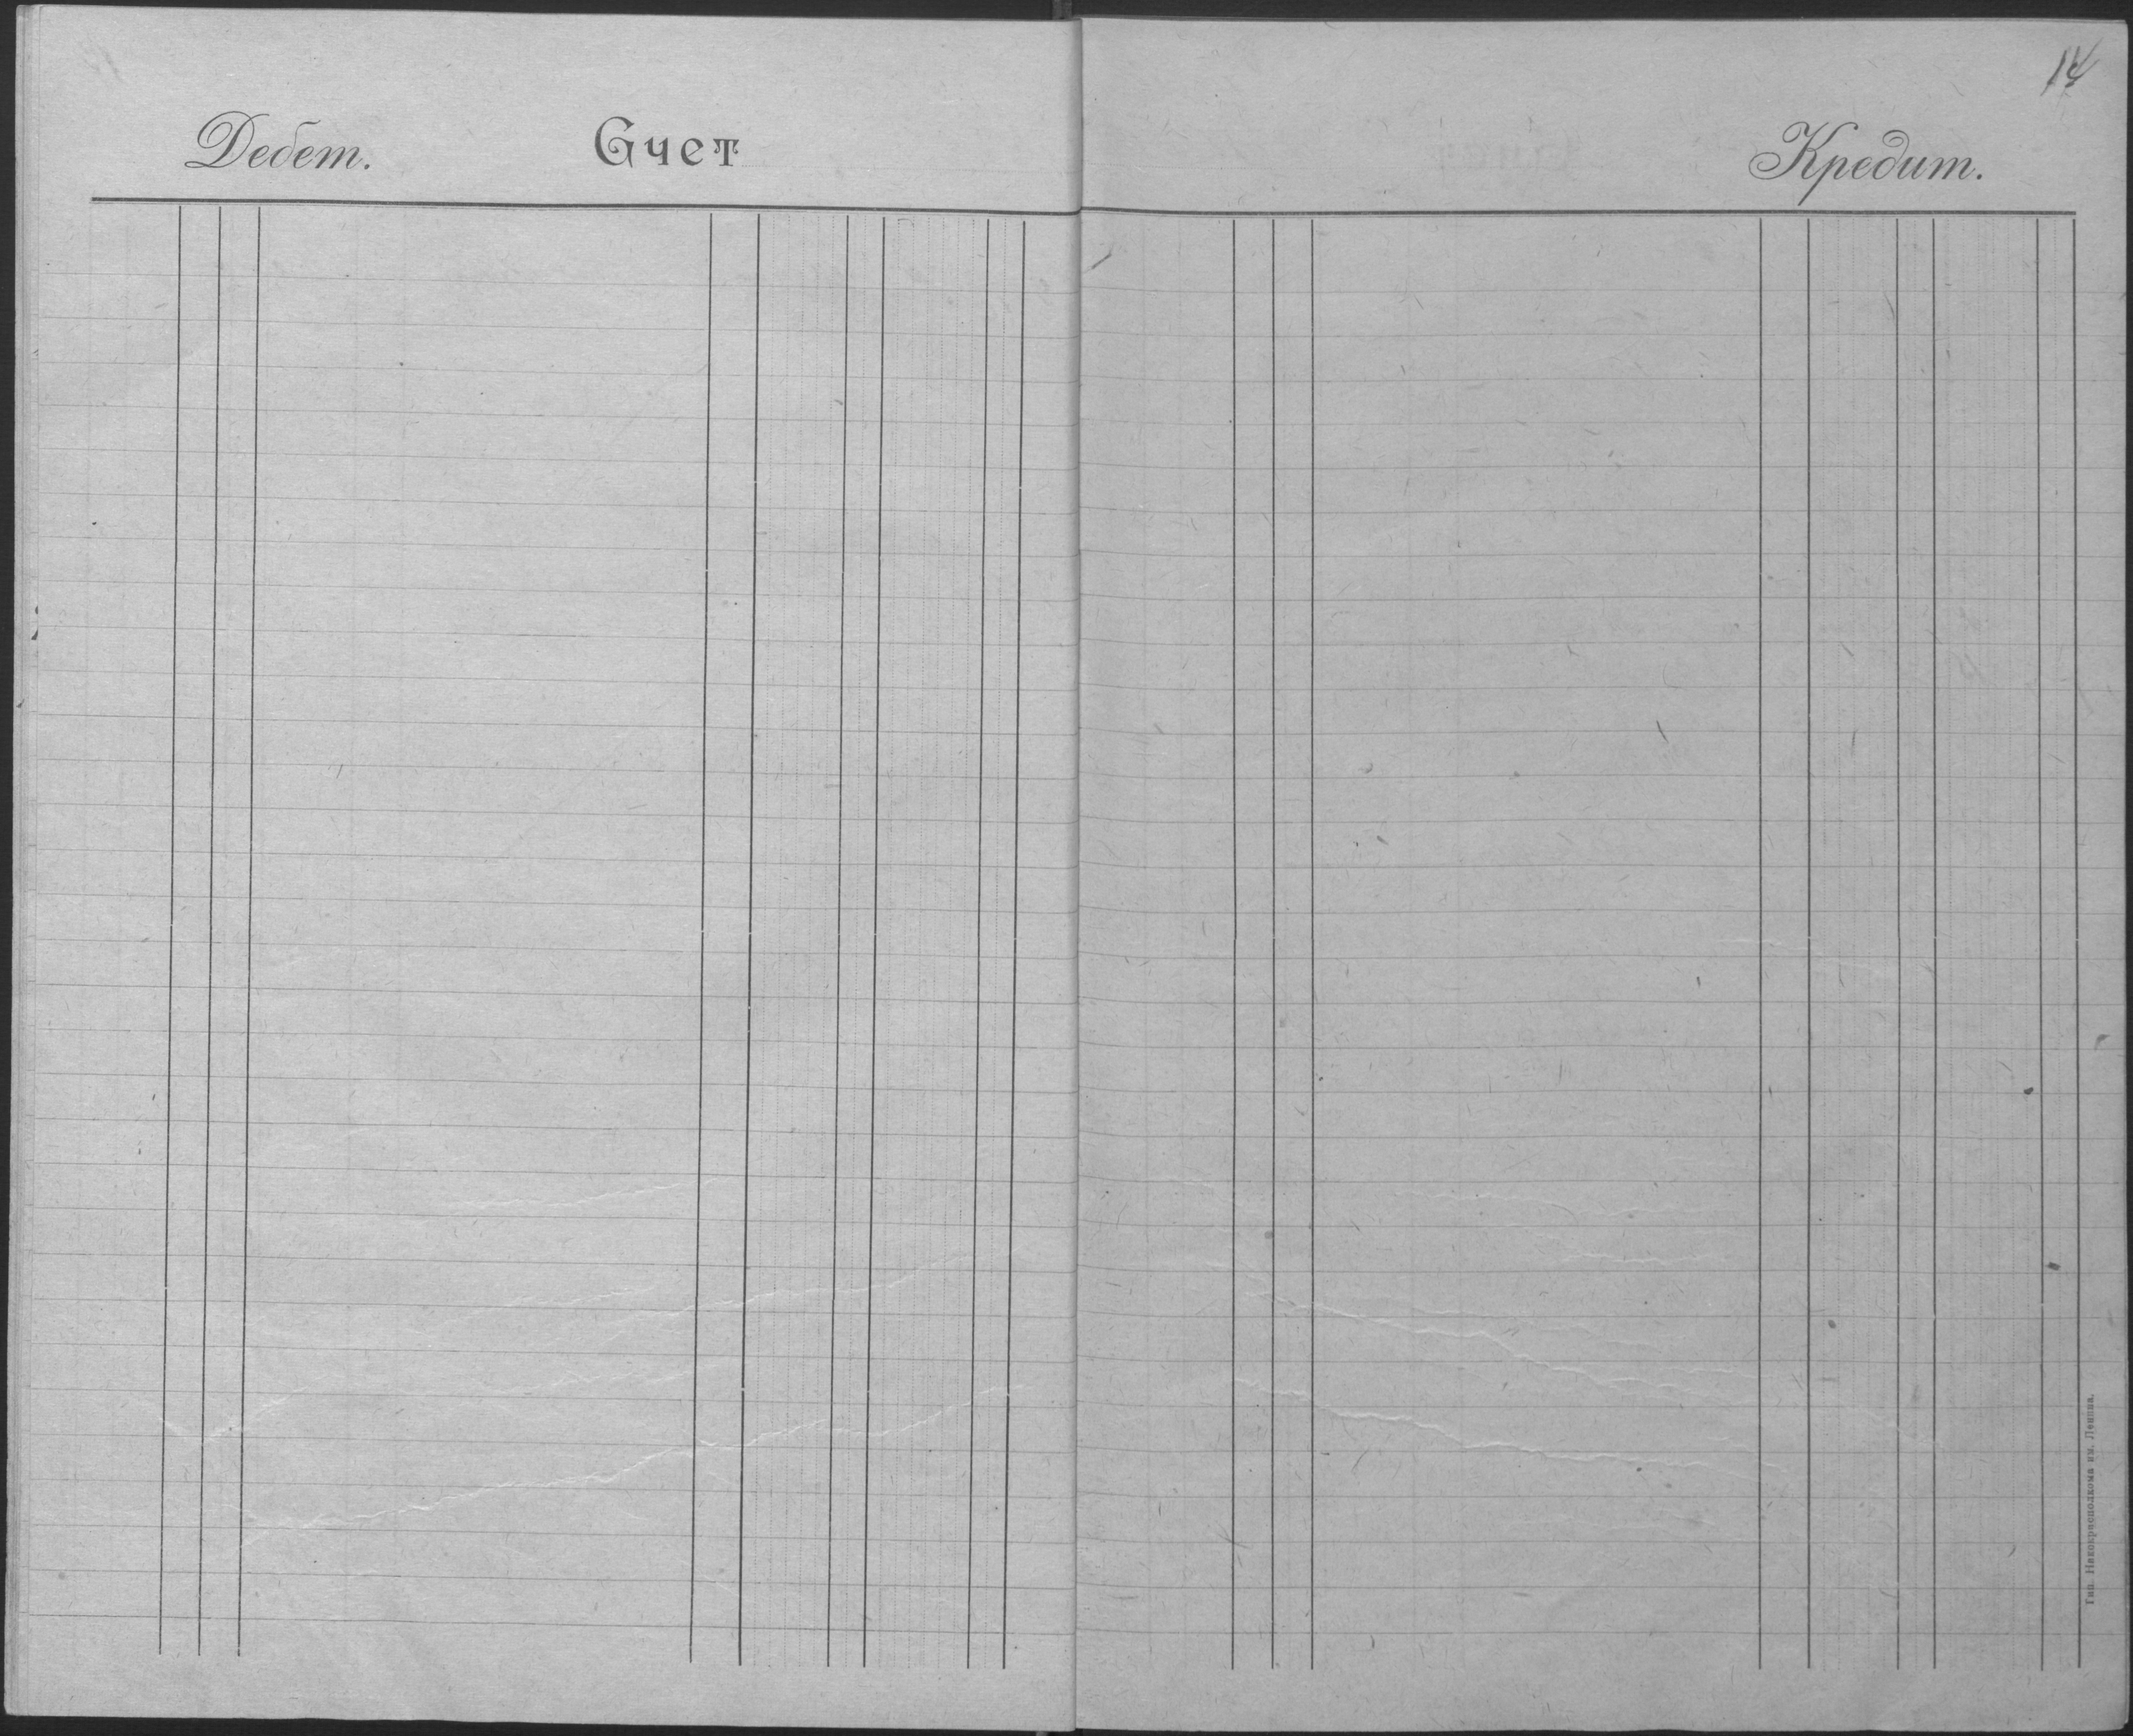 14
Дебет. Счет Кредит.
Тип. Накокрисполкома им. Ленина.